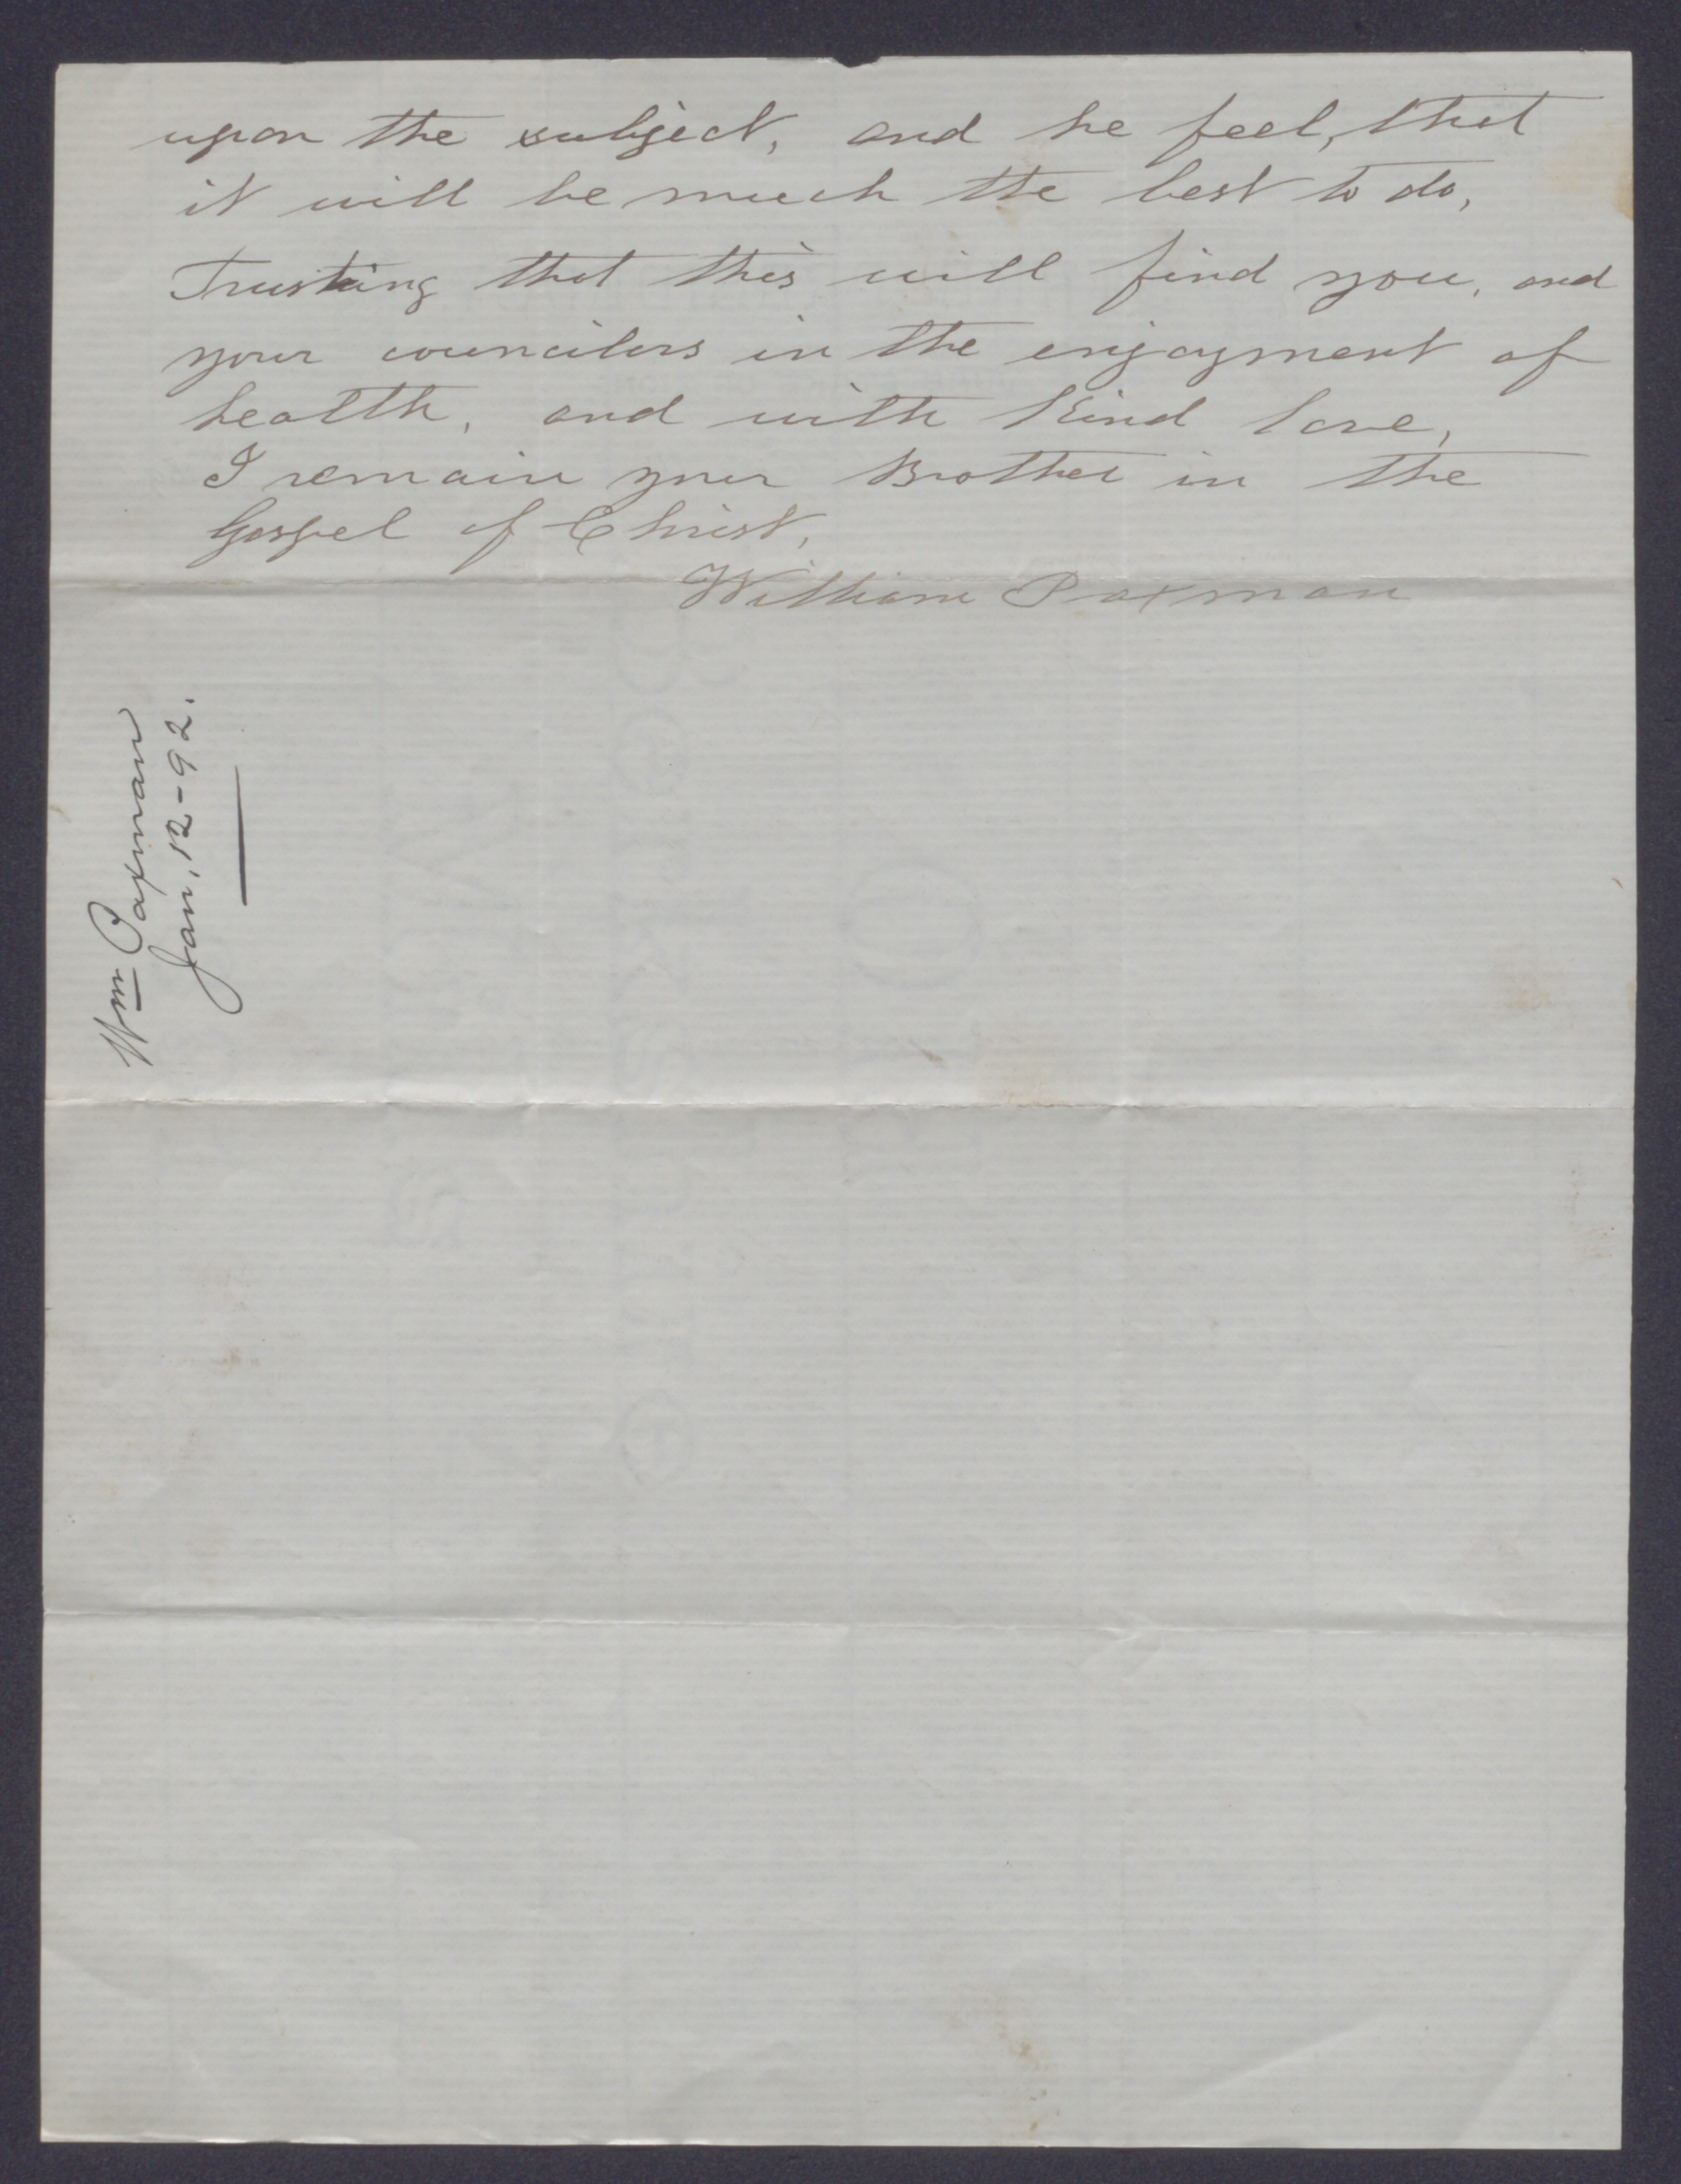 upon the subject, and he feel, that
it will be much the best to do,
Trusting that this will find you, and
your councilors in the enjoyment of
health, and with Kind love,
I remain your Brother in the
Gospel of Christ,
William Paxman
Wm Paxman
Jan, 12-92.